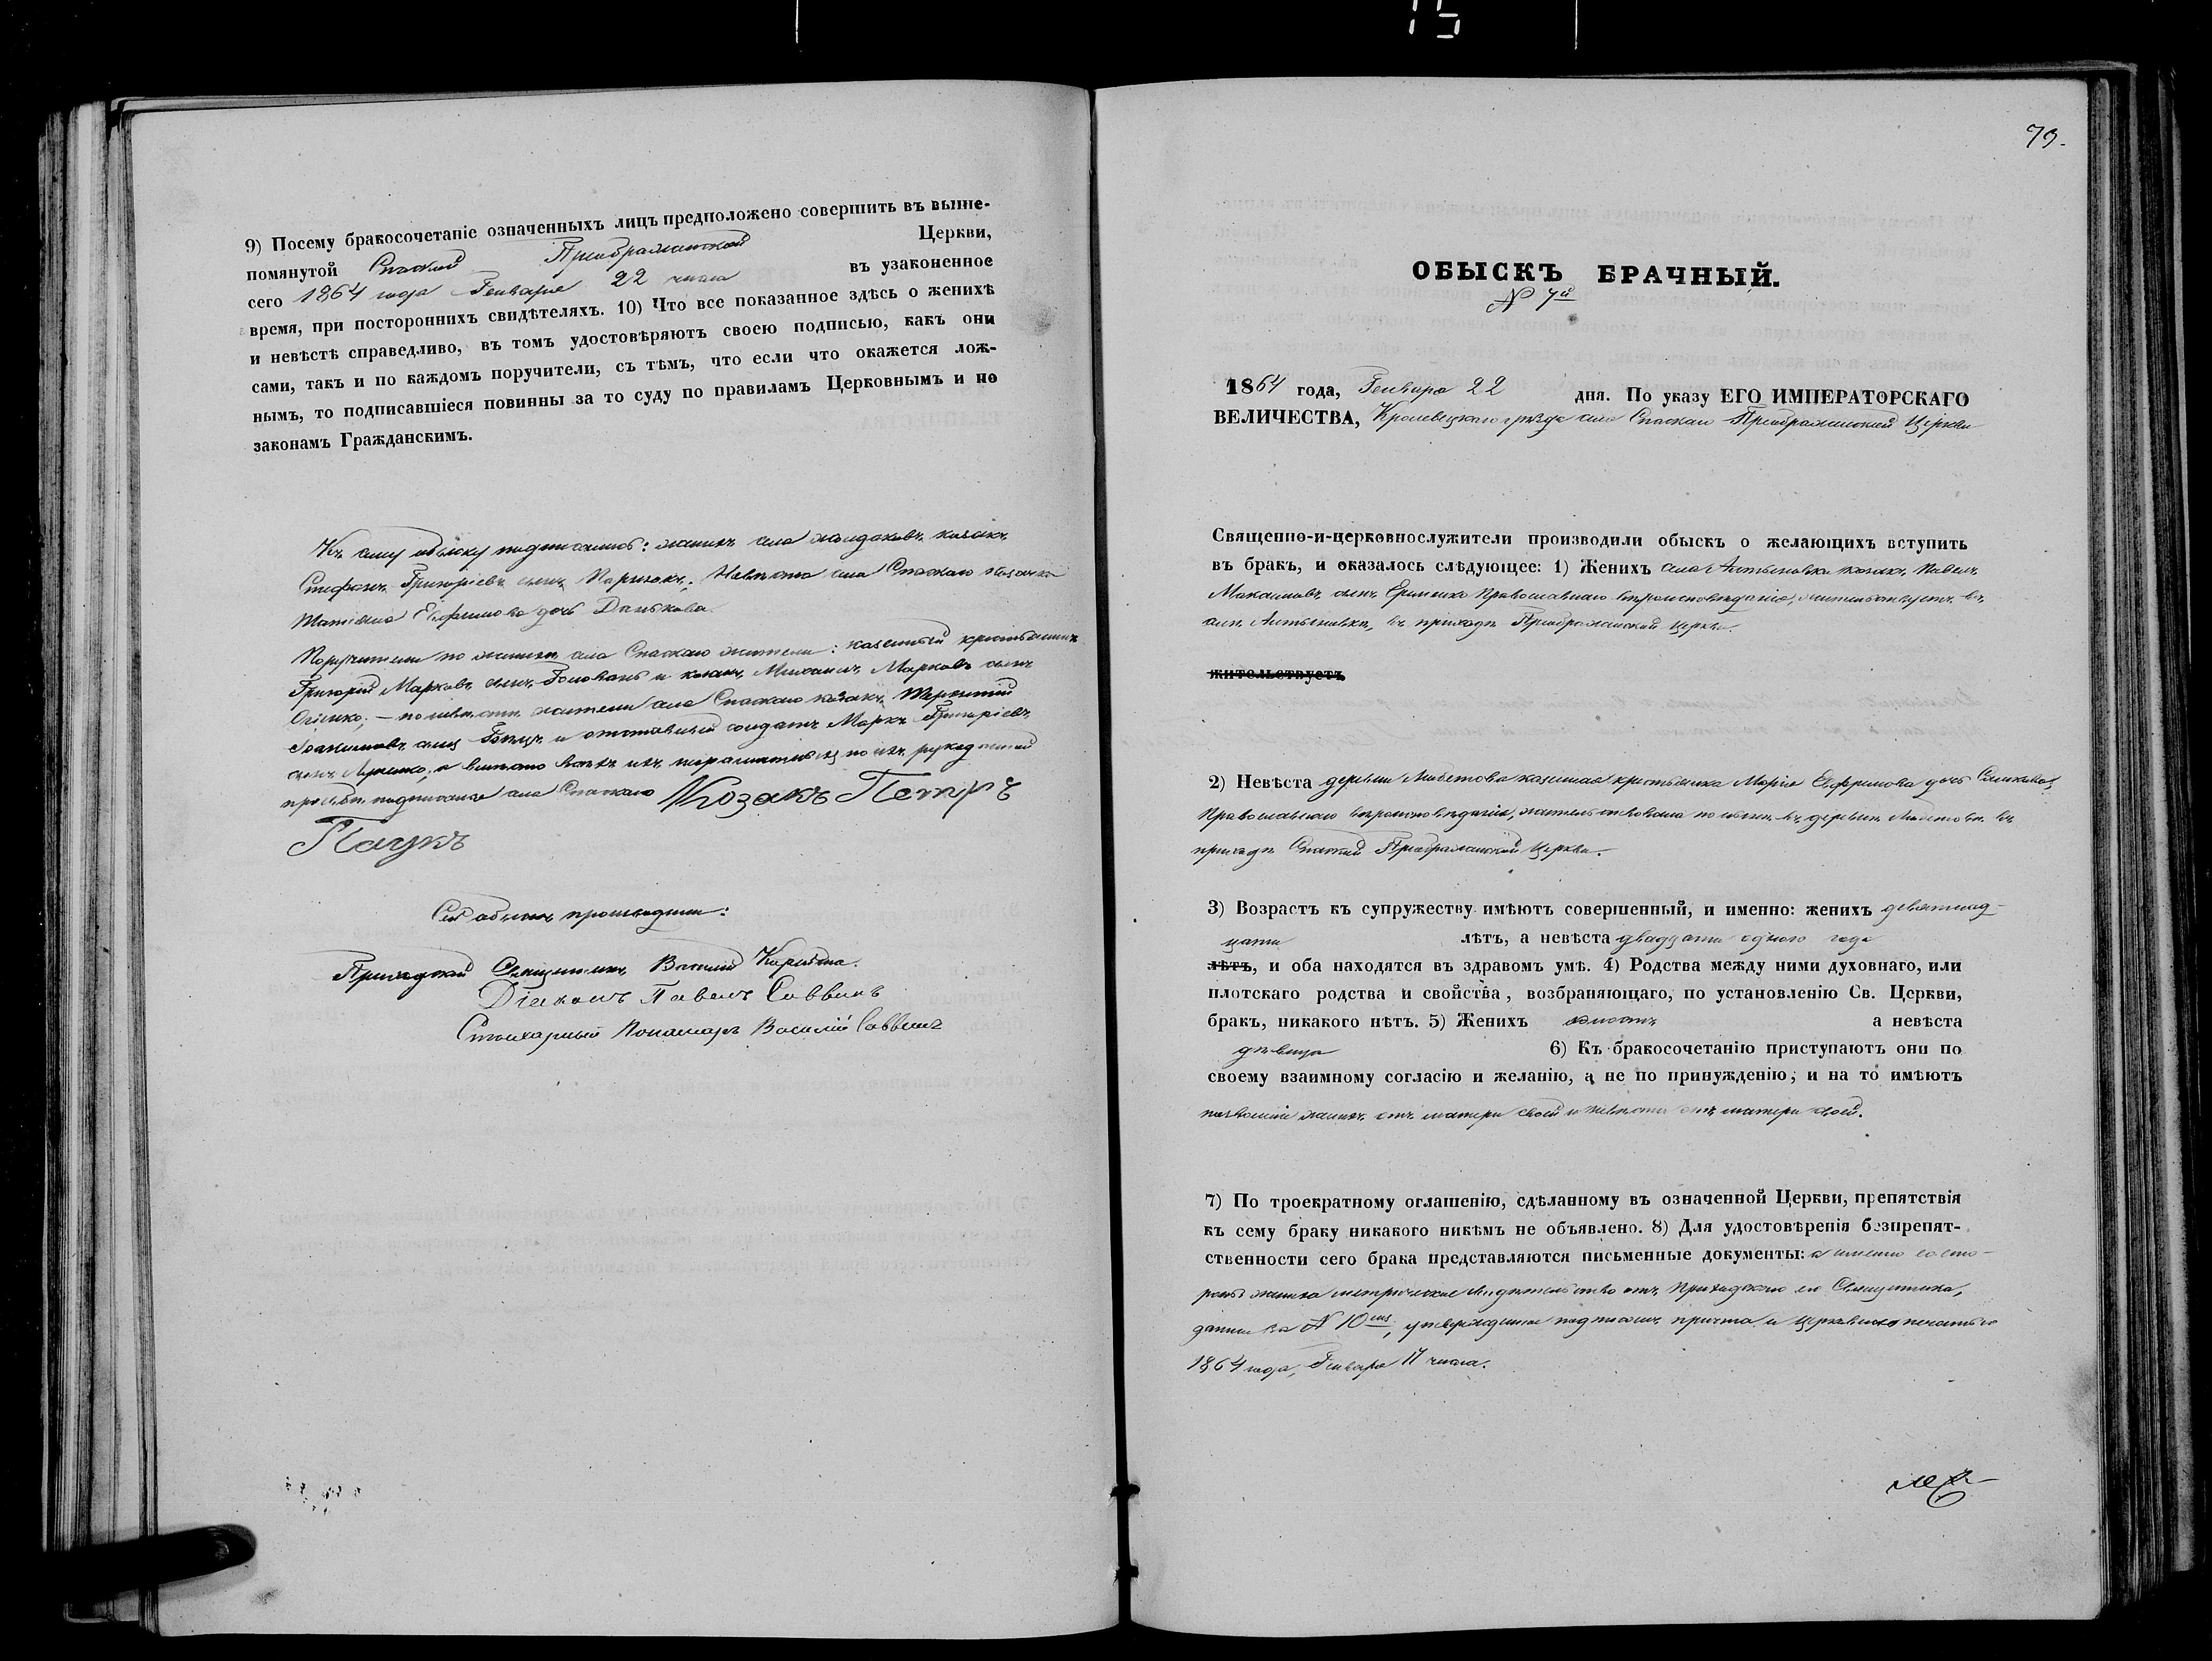 9) Посему бракосочетаніе означенныхъ лицъ предположено совершить въ выше-
помянутой Спаской Преображенской Церкви,
сего 1864 года Генваря 22 числа въ узаконенное
время, при постороннихъ свидѣтеляхъ. 10) Что все показанное здѣсь о женихѣ
и невѣстѣ справедливо, въ томъ удостовѣряютъ своею подписью, какъ они
сами, такъ и по каждомъ поручители, съ тѣмъ, что если что окажется лож-
нымъ, то подписавшіеся повинны за то суду по правиламъ Церковнымъ и по
законамъ Гражданскимъ.
Къ сему обыску подписались: женихъ села козакъ
Стефанъ Григоріевъ сынъ невѣста села Спаскаго козачка
Евфимова дочьДанькова.
Поручители по женихѣ села Спаскаго жители: казенный крестьянинъ
Григорій Марковъ сынъ Головань и козакъ Михаилъ Марковъ сынъ
по невѣстѣ жители села Спаскаго козакъ Терентій
сынъ и отставный солдатъ Маркъ Григоріевъ
сынъ а вмѣсто всѣхъ ихъ неграмотныхъ по ихъ рукоданной
прозьбѣ подписался села Спаскаго Козакъ Петръ
Пацукъ
Сей обыскъ производили:
Приходскій Священникъ Василій
Діаконъ Павелъ Саввинъ
Стихарный Пономарь Василій Саввинъ
79.
ОБЫСКЪ БРАЧНЫЙ.
N 7й
1864 года, Генваря 22 дня. По указу ЕГО ИМПЕРАТОРСКАГО
ВЕЛИЧЕСТВА, Кролевецкаго уѣзда села Спаскаго Преображенской Церкви
Священно-и-церковнослужители производили обыскъ о желающихъ вступить
въ бракъ, и оказалось слѣдующее: 1) Женихъ села козакъ Павелъ
Максимовъ сынъ Ерименко Православнаго вѣроисповѣданія, жительствуетъ въ
селѣ въ приходѣ Преображенской Церкви.
жительствуетъ
2) Невѣста деревни Любитова казенная крестьянка Марія Евфимова дочь
Православнаго вѣроисповѣданія, жительствовала по нынѣ въ деревнѣ Любитовѣ въ
приходѣ Спаской Преображенской Церкви.
3) Возрастъ къ супружеству имѣютъ совершенный, и именно: женихъ девятнад-
цати лѣтъ, а невѣста двадцати одного года
лѣтъ, и оба находятся въ здравомъ умѣ. 4) Родства между ними духовнаго, или
плотскаго родства и свойства, возбраняющаго, по установленію Св. Церкви,
бракъ, никакого нѣтъ. 5) Женихъ холостъ а невѣста
дѣвица 6) Къ бракосочетанію приступаютъ они по
своему взаимному согласію и желанію, а не по принужденію, и на то имѣютъ
позволеніе женихъ отъ матери своей и невѣста отъ матери своей.
7) По троекратному оглашенію, сдѣланному въ означенной Церкви, препятствія
къ сему браку никакого никѣмъ не объявлено. 8) Для удостовѣренія безпрепят-
ственности сего брака представляются письменные документы: а именно со сто-
роны жениха метрическое свидѣтельство отъ Приходскаго его Священника,
данное за N 10мъ, утвержденное подписомъ причта и Церковною печатью
1864 года, Генваря 17 числа.